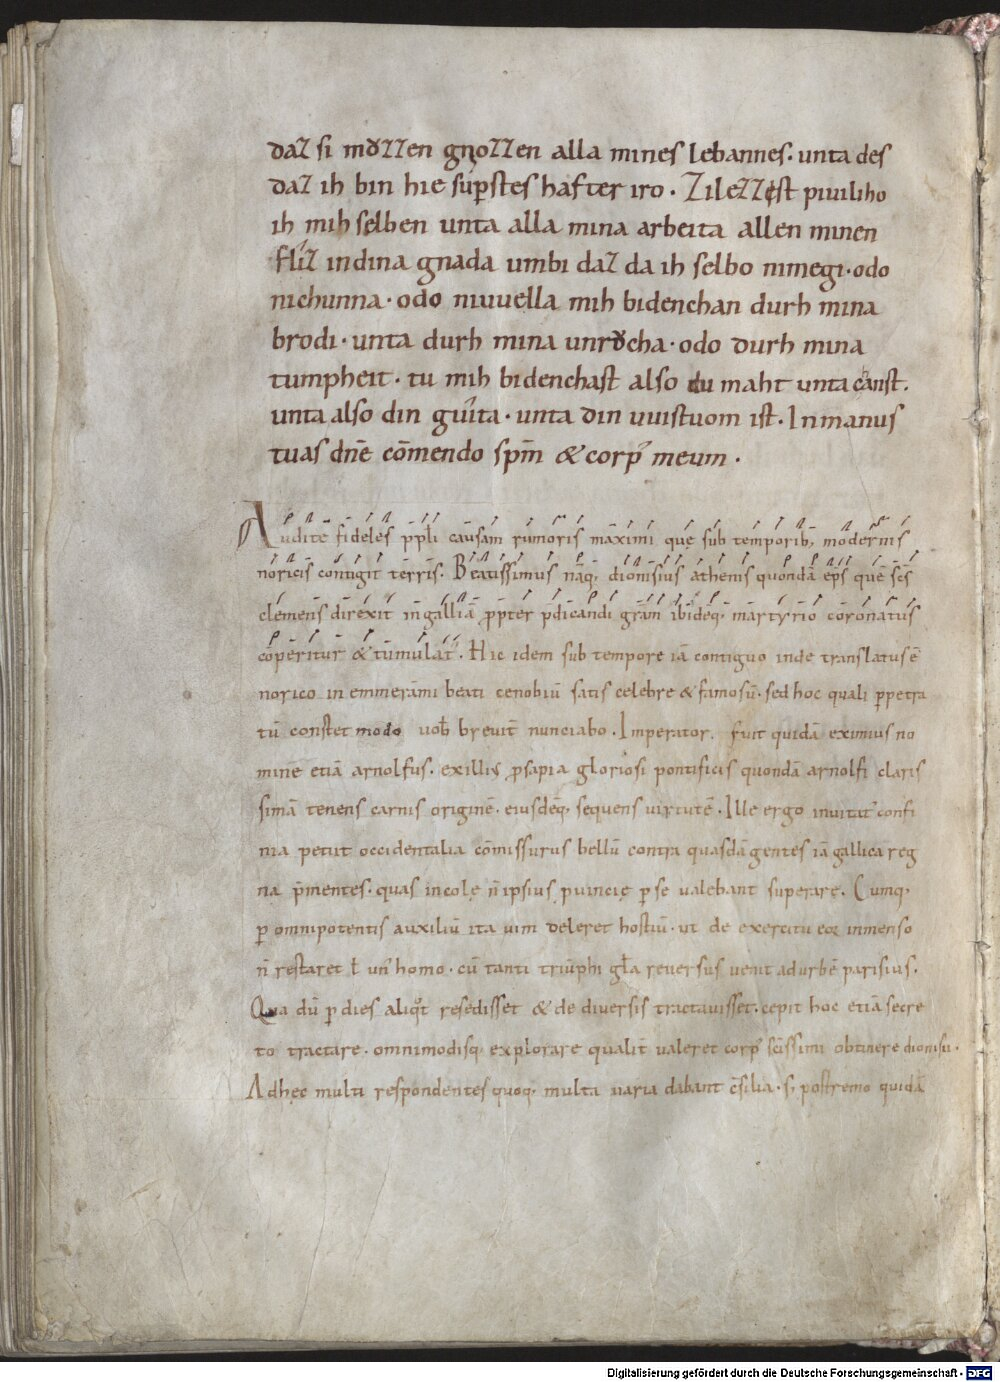 daz si muͦzzen gnozzen alla mines lebannes· unta des
daz ih bin hie sup̲stes hafter iro· Zilezzest piuiliho
ih mih selben unta alla mina arbeita allen minen
fliz in dina gnada umbi daz da ih selbo nimegi· odo
nichunna· odo niuuella mih bidenchan durh mina
brodi· unta durh mina unruͦcha· odo durh mina
tumpheit· tu mih bidenchast also du maht unta canst.
unta also din guîta· unta din uuistuom ist· In manus
tuas dn̄e cōmendo sp̄m & corp᾽ meum·
Audite fideles pp̄li causam rumoris maximi quę sub temporib; modernis
noricis contigit terris· Beatissimus nāq; dionisius athenis quondā ep̄s quē sc̄s
clemens direxit in galliā p̲pter p̄dicandi gr̄am ibidēq; martyrio coronatus
cōperitur & tumulat᾽· Hic idem sub tempore iā contiguo inde translatus ē
norico in emmerāmi beati cenobiū satis celebre & famosū· sed hoc qualit̄ p̲petra
tū constet modo uob̄ breuit̄ nunciabo· Imperator fuit quidā eximius no
mine etiā arnolfus· ex illis p̲sapia gloriosi pontificis quondā arnolfi claris
simā tenens carnis originē· eiusdēq; sequens uirtutē· Ille ergo inuitat᾽ confi
nia petiit occidentalia cōmissurus bellū contra quasdā gentes iā gallica reg
na p̄mentes· quas incolę n̄ ipsius p̲uincię p̲ se ualebant superare· Cumq;
p̲ omnipotentis auxiliū ita uim deleret hostiū· ut de exercitu eoꝝ inmenso
n̄ restaret ł un᾽ homo· cū tanti triūphi gła reuersus uenit ad urbē parisius·
Qua dū p̲ dies aliqͦt resedisset & de diuersis tractauisset· cepit hoc etiā secre
to tractare· omnimodisq; explorare qualit̄ ualeret corp᾽ sc̄issimi obtinere dionisii·
Ad hęc multi respondentes quoq; multa uaria dabant c̄silia· s; postremo quidā
Digitalisierung gefördert durch die Deutsche Forschungsgemeinschaft - DFG